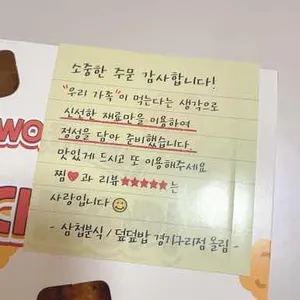 소중한 주문 감사합니다!
"우리 가족"이 먹는다는 생각으로
신선한 재료만을 이용하여
정성을 담아 준비했습니다.
맛있게 드시고 또 이용해주세요
찜♥과 리뷰★★★★★는
사랑입니다😊
- 삼첩분식 / 덮덮밥 경기구리점 올림 -